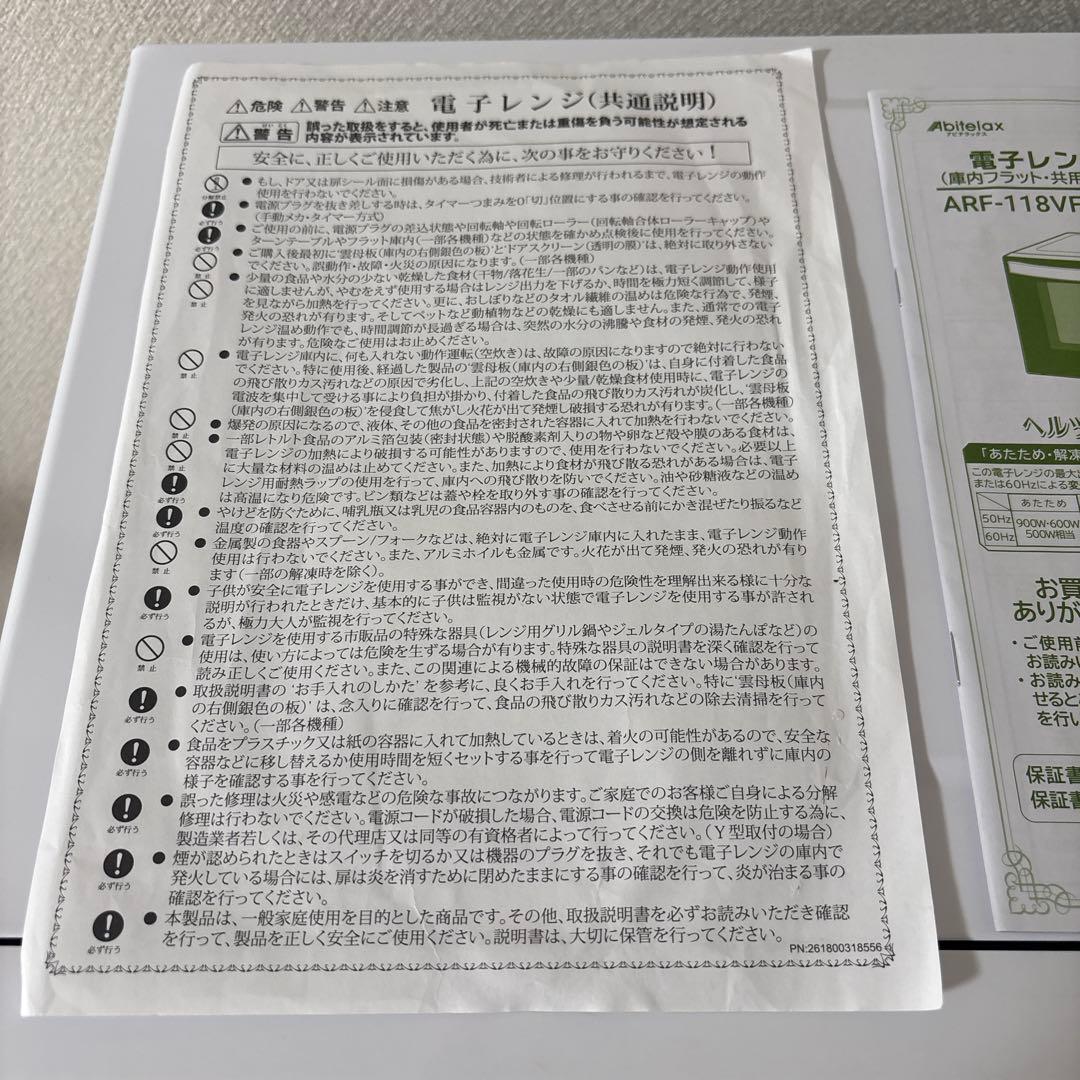 ⚠危険 ⚠警告 ⚠注意 電子レンジ(共通説明)
⚠警告 誤った取扱をすると、使用者が死亡または重傷を負う可能性が想定される
内容が表示されています。
安全に、正しくご使用いただく為に、次の事をお守りください!
分解禁止
● もし、ドア又は扉シール面に損傷がある場合、技術者による修理が行われるまで、電子レンジの動作
使用を行わないでください。
必ず行う
● 電源プラグを抜き差しする時は、タイマーつまみを0「切」位置にする事の確認を行ってください。
(手動メカ・タイマー方式)
必ず行う
● ご使用の前に、電源プラグの差込状態や回転軸や回転ローラー(回転軸合体ローラーキャップ)や
ターンテーブルやフラット庫内(一部各機種)などの状態を確かめ点検後に使用を行ってください。
禁止
● ご購入後最初に'雲母板(庫内の右側銀色の板)'と'ドアスクリーン(透明の膜)'は、絶対に取り外さない
でください。誤動作・故障・火災の原因になります。(一部各機種)
禁止
● 少量の食品や水分の少ない乾燥した食材(干物/落花生/一部のパンなど)は、電子レンジ動作使用
に適しませんが、やむをえず使用する場合はレンジ出力を下げるか、時間を極力短く調節して、様子
を見ながら加熱を行ってください。更に、おしぼりなどのタオル繊維の温めは危険な行為で、発煙、
発火の恐れが有ります。そしてペットなど動植物などの乾燥にも適しません。また、通常での電子
レンジ温め動作でも、時間調節が長過ぎる場合は、突然の水分の沸騰や食材の発煙、発火の恐れ
が有ります。危険なご使用はお止めください。
禁止
● 電子レンジ庫内に、何も入れない動作運転(空炊き)は、故障の原因になりますので絶対に行わない
でください。特に使用後、経過した製品の'雲母板(庫内の右側銀色の板)'は、自身に付着した食品
の飛び散りカス汚れなどの原因で劣化し、上記の空炊きや少量/乾燥食材使用時に、電子レンジの
電波を集中して受ける事により負担が掛かり、付着した食品の飛び散りカス汚れが炭化し、'雲母板
(庫内の右側銀色の板)'を侵食して焦がし火花が出て発煙し破損する恐れが有ります。(一部各機種)
禁止
● 爆発の原因になるので、液体、その他の食品を密封された容器に入れて加熱を行わないでください。
禁止
● 一部レトルト食品のアルミ箔包装(密封状態)や脱酸素剤入りの物や卵など殻や膜のある食材は、
電子レンジの加熱により破損する可能性がありますので、使用を行わないでください。必要以上
に大量な材料の温めは止めてください。また、加熱により食材が飛び散る恐れがある場合は、電子
レンジ用耐熱ラップの使用を行って、庫内への飛び散りを防いでください。油や砂糖液などの温め
は高温になり危険です。ビン類などは蓋や栓を取り外す事の確認を行ってください。
必ず行う
必ず行う
● やけどを防ぐために、哺乳瓶又は乳児の食品容器内のものを、食べさせる前にかき混ぜたり振るなど
温度の確認を行ってください。
禁止
● 金属製の食器やスプーン/フォークなどは、絶対に電子レンジ庫内に入れたまま、電子レンジ動作
使用は行わないでください。また、アルミホイルも金属です。火花が出て発煙、発火の恐れが有り
ます(一部の解凍時を除く)。
必ず行う
● 子供が安全に電子レンジを使用する事ができ、間違った使用時の危険性を理解出来る様に十分な
説明が行われたときだけ、基本的に子供は監視がない状態で電子レンジを使用する事が許され
るが、極力大人が監視を行ってください。
禁止
● 電子レンジを使用する市販品の特殊な器具(レンジ用グリル鍋やジェルタイプの湯たんぽなど)の
使用は、使い方によっては危険を生ずる場合が有ります。特殊な器具の説明書を深く確認を行って
読み正しくご使用ください。また、この関連による機械的故障の保証はできない場合があります。
必ず行う
● 取扱説明書の'お手入れのしかた'を参考に、良くお手入れを行ってください。特に'雲母板(庫内
の右側銀色の板)'は、念入りに確認を行って、食品の飛び散りカス汚れなどの除去清掃を行って
ください。(一部各機種)
必ず行う
● 食品をプラスチック又は紙の容器に入れて加熱しているときは、着火の可能性があるので、安全な
容器などに移し替えるか使用時間を短くセットする事を行って電子レンジの側を離れずに庫内の
様子を確認する事を行ってください。
必ず行う
● 誤った修理は火災や感電などの危険な事故につながります。ご家庭でのお客様ご自身による分解
修理は行わないでください。電源コードが破損した場合、電源コードの交換は危険を防止する為に、
製造業者若しくは、その代理店又は同等の有資格者によって行ってください。(Y型取付の場合)
必ず行う
● 煙が認められたときはスイッチを切るか又は機器のプラグを抜き、それでも電子レンジの庫内で
発火している場合には、扉は炎を消すために閉めたままにする事の確認を行って、炎が治まる事の
確認を行ってください。
必ず行う
● 本製品は、一般家庭使用を目的とした商品です。その他、取扱説明書を必ずお読みいただき確認
を行って、製品を正しく安全にご使用ください。説明書は、大切に保管を行ってください。
PN:261800318556
Abitelax
アビテラックス
電子レン
(庫内フラット・共用
ARF-118VF
ヘルツ
「あたため・解凍
この電子レンジの最大
または60Hzによる変
あたため
50Hz 900W・600W
60Hz 500W相当
お買
ありが
・ご使用前
お読み
・お読み
せると
を行い
保証書
保証書